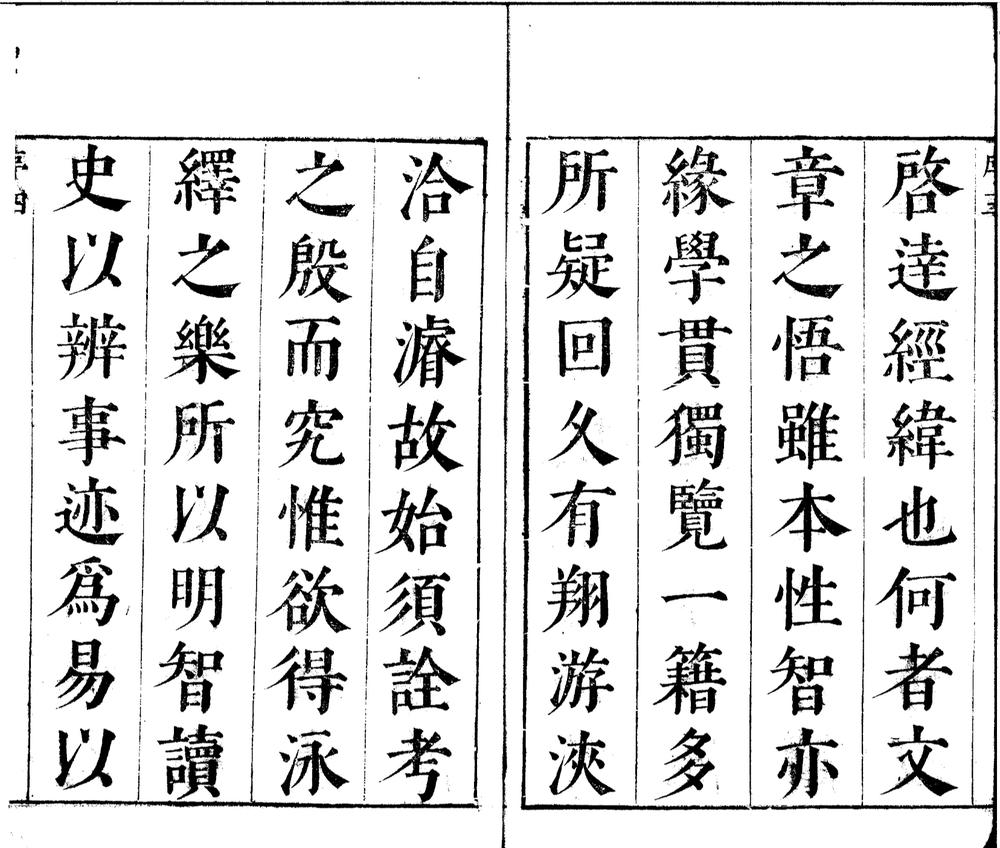 啓達經緯也何者文
章之悟雖本性智亦
緣學貫獨覽一籍多
所疑回久有翔游浹
洽自濬故始須詮考
之殷而究惟欲得泳
繹之樂所以明智讀
史以辨事迹爲易以